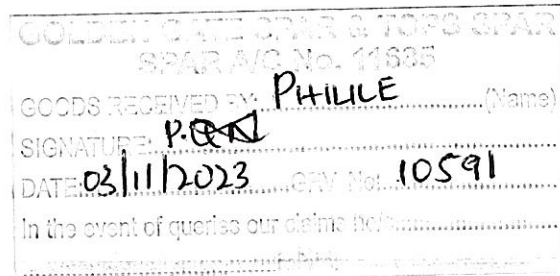 GOLDEN GATE SPAR & TOPS SPAR
SPAR A/C No. 11685
GOODS RECEIVED BY: PHILILE (Name)
SIGNATURE: P.
DATE: 03/11/2023 GRV No: 10591
In the event of queries our claims